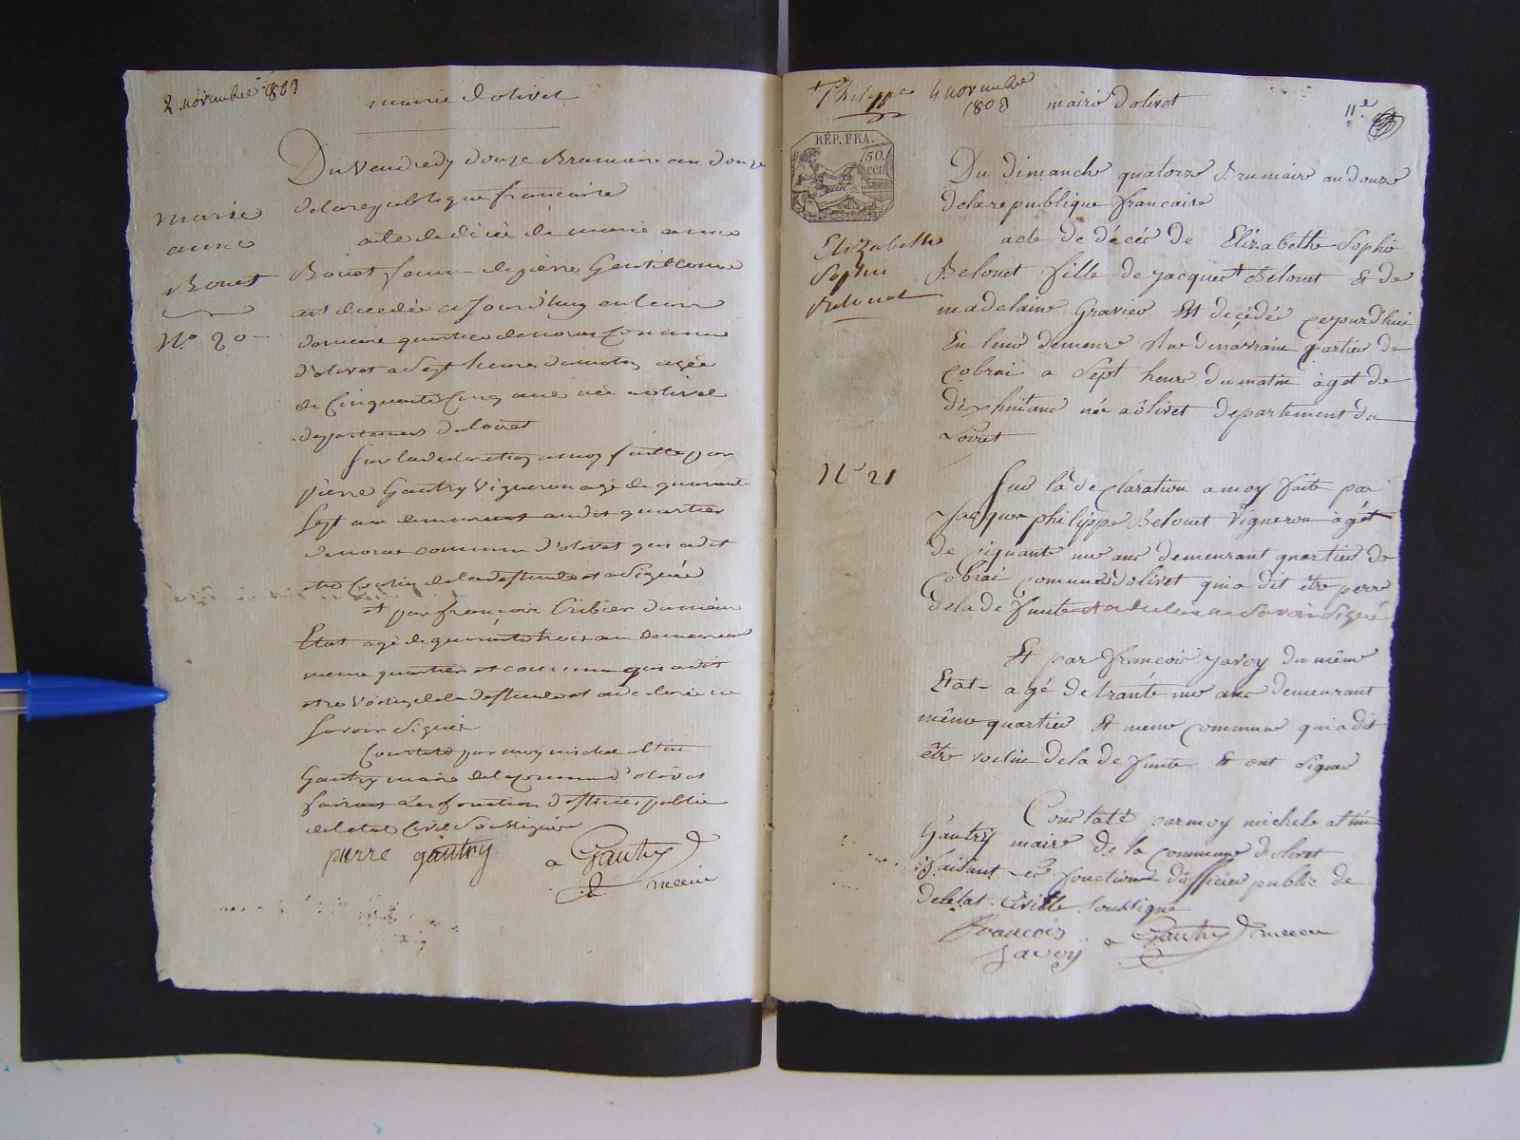 2 novembre 1803
mairie d'olivet
Du Vendredy douze Brumaire an douze
de la republique francaise
acte de décès de marie anne
marie
anne
Bouet
N.o 20
Bouet femme de pierre Gentilhomme
est decedée ce jourd'huy en leur
demeure quartier de commune
d'olivet a Sept heure du matin agée
de Cinquante Cinq ans née a olivet
departement du loiret
Sur la declaration a moy faitte par
pierre Gautry Vigneron agé de quarante
Sept ans demeurant audit quartier
commune d'olivet qui a dit
etre Cousin de la deffunte et a Signé
et par francois Cribier du même
Etat agé de quarante trois ans demeurant
meme quartier et commune qui a dit
etre Voisin de la deffunte et a declaré ne
Savoir Signer
Constaté par moy michel
Gautry maire de la commune d'olivet
faisant Les fonction d'officier public
de letat Civil Soussigné
pierre gautry
Gautry
maire
Philippe 4 novembre
1803
mairie d'olivet
11.e
RÉP. FRA.
50.
cent
Du dimanche quatorze Brumaire an douze
de la republique francaise
acte de décès de Elizabethe Sophie
Elizabethe
Sophie
Belouet
Belouet fille de jacques Belouet Et de
madelaine Gravier Est décédée cejourd'hui
En leur demeure Rue quartier de
Cobrai a Sept heure du matin agét de
dix huitans née a ôlivet departement du
Loiret
N.o 21
Sur la declaration a moy faite par
Jacque philippe Belouet Vigneron agét
de ciquante ans demeurant quartier de
Cobrai commune d'olivet qui a dit être perre
de la de funte et a declaré ne Savoir Signé
Et par francois javoy du même
Etat agé de trante ans demeurant
même quartier Et meme commune qui a dit
être voisin de la de funte Et ont Signé
Constaté par moy michele
Gautry maire de la commune d'olivet
faisant les fonction d'officier public de
de letat Civille Soussigné
francois
javoy
Gautry maire